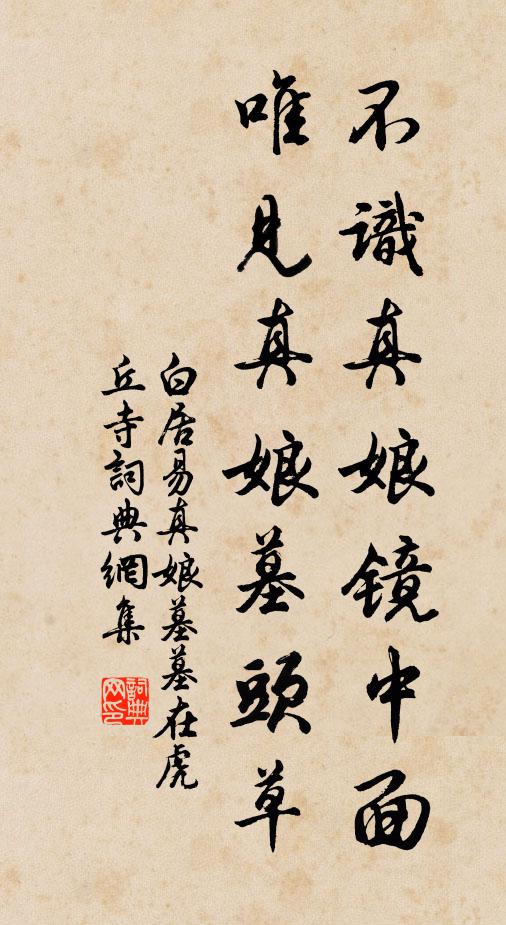 不識真娘镜中面
唯見真娘墓頭草
白居易真娘墓墓在虎
丘寺詞典網集
詞典
网印